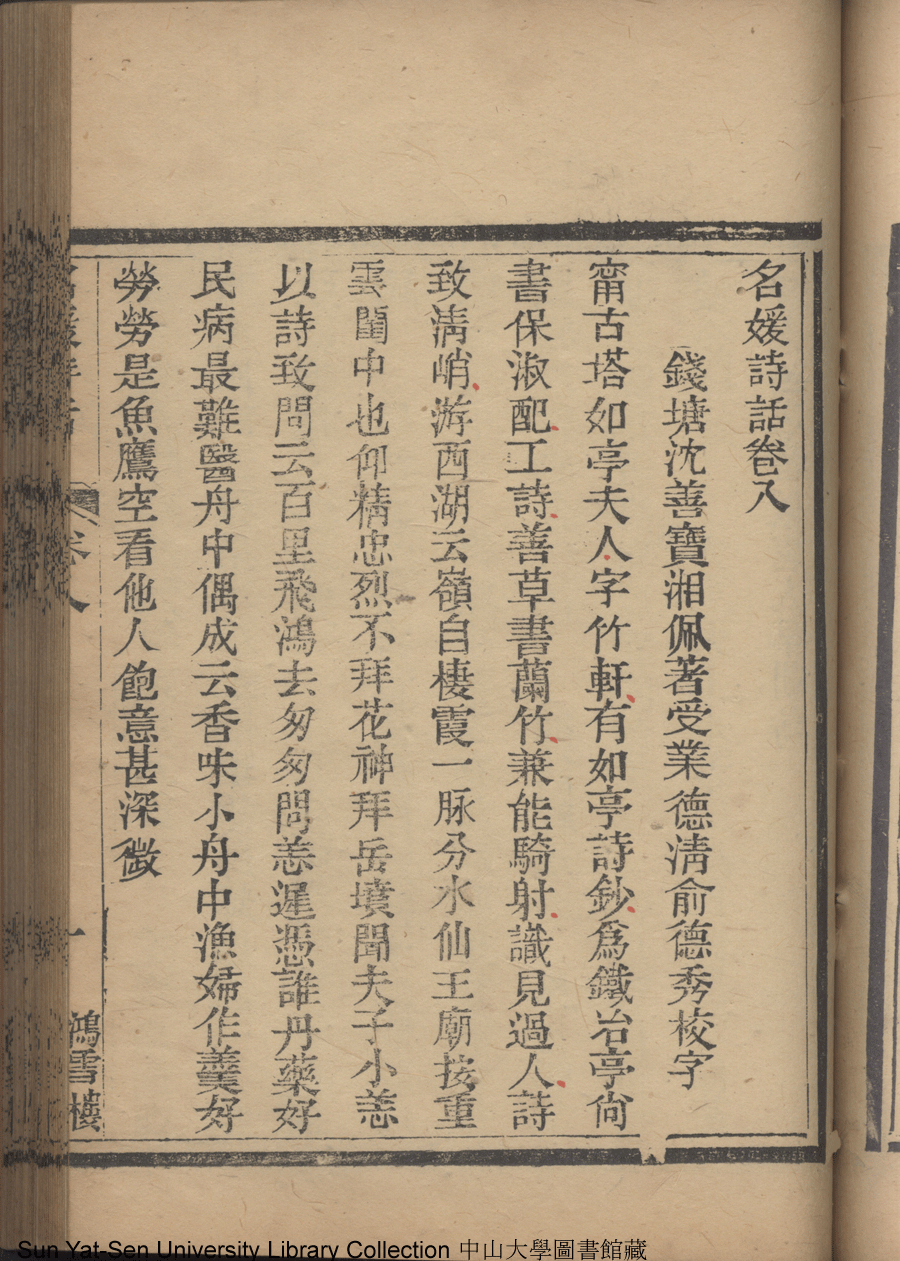 名媛詩話卷八
錢塘沈善寶湘佩著受業德淸俞德秀校字
甯古塔如亭夫人字竹軒有如亭詩鈔爲鐵冶亭尙
書保淑配工詩善草書蘭竹兼能騎射識見過人詩
致淸峭游西湖云嶺自棲霞一脉分水仙王廟按重
雲閨中也仰精忠烈不拜花神拜岳墳聞夫子小恙
以詩致問云百里飛鴻去匆匆問恙遲憑誰丹藥好
民病最難醫舟中偶成云香味小舟中漁婦作羹好
勞勞是魚鷹空看他人飽意甚深微
名媛詩話
卷八
一
鴻雪樓
Sun Yat-Sen University Library Collection 中山大學圖書館藏